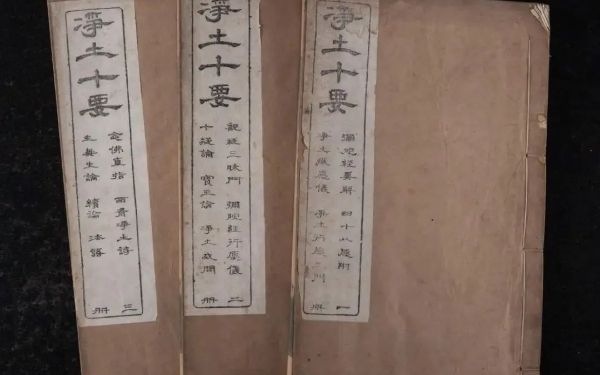 淨土十要
彌陀經要解 四十八願附
淨土懺願儀 淨土行願門
一册
淨土十要
觀經三昧門 彌陀經行願儀
十疑論 寶王論 淨土或問
二册
淨土十要
念佛直指 西齋淨土詩
生無生論 續論 法語
三册